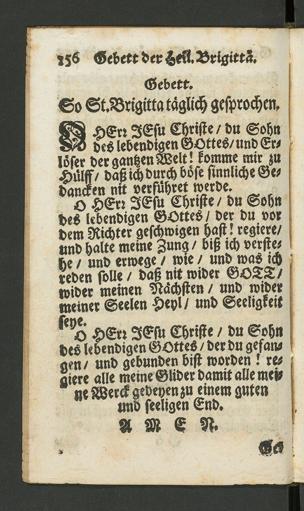 156 Gebett der Heil. Brigittä.
Gebett.
So St. Brigitta täglich gesprochen.
O HErr JEsu Christe / du Sohn
des lebendigen GOttes / und Er-
löser der gantzen Welt! komme mir zu
Hülff / daß ich durch böse sinnliche Ge-
dancken nit verführet werde.
O HErr JEsu Christe / du Sohn
des lebendigen GOttes / der du vor
dem Richter geschwigen hast! regiere /
und halte meine Zung / biß ich verste-
he / und erwege / wie / und was ich
reden solle / daß nit wider GOTT /
wider meinen Nächsten / und wider
meiner Seelen Heyl / und Seeligkeit
seye.
O HErr JEsu Christe / du Sohn
des lebendigen GOttes / der du gefan-
gen / und gebunden bist worden! re-
giere alle meine Glider damit alle mei-
ne Werck gedeyen zu einem guten
und seeligen End.
A M E N.
Geb